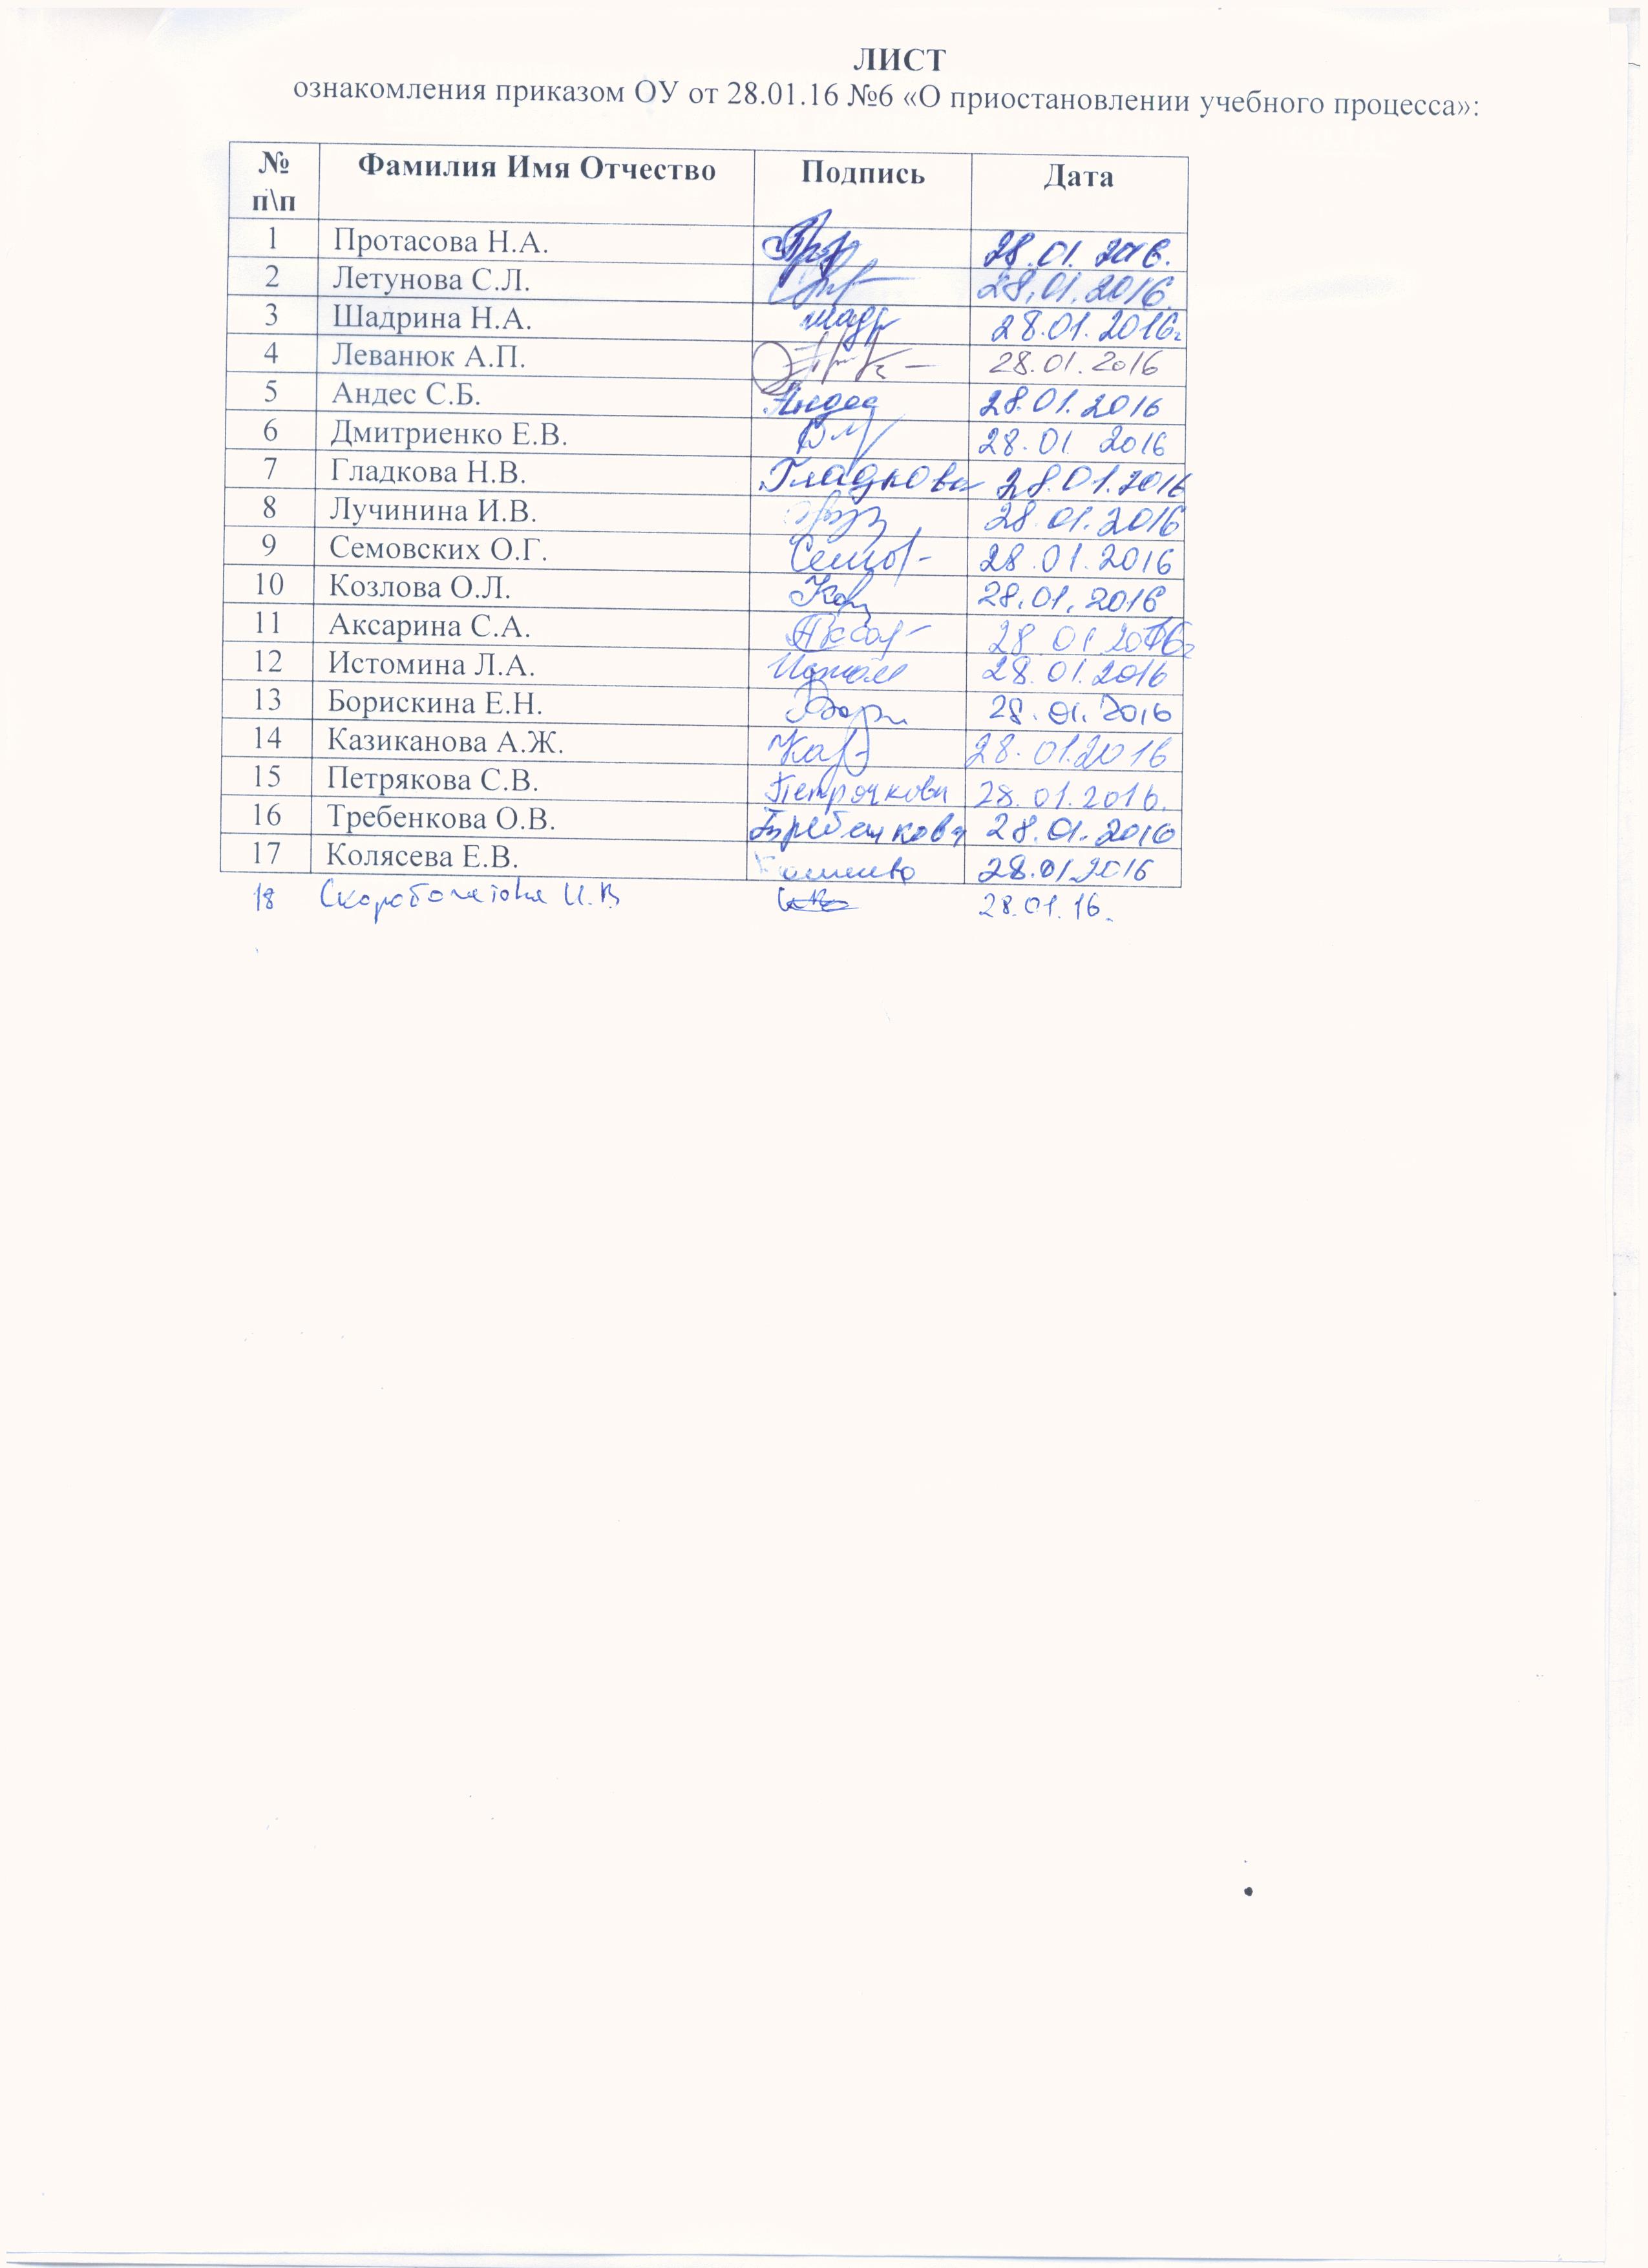 ЛИСТ
ознакомления приказом ОУ от 28.01.16 №6 «О приостановлении учебного процесса»:
№ п\п Фамилия Имя Отчество Подпись Дата
1 Протасова Н.А. 28.01.2016.
2 Летунова С.Л. 28.01.2016.
3 Шадрина Н.А. Шадр 28.01.2016г
4 Леванюк А.П. 28.01.2016
5 Андес С.Б. Андес 28.01.2016
6 Дмитриенко Е.В. 28.01 2016
7 Гладкова Н.В. Гладкова 28.01.2016
8 Лучинина И.В. 28.01.2016
9 Семовских О.Г. 28.01.2016
10 Козлова О.Л. 28.01.2016
11 Аксарина С.А. 28.01.2016г
12 Истомина Л.А. 28.01.2016
13 Борискина Е.Н. 28.01.2016
14 Казиканова А.Ж. 28.01.2016
15 Петрякова С.В. Петрякова 28.01.2016.
16 Требенкова О.В. Требенкова 28.01.2016
17 Колясева Е.В. 28.01.2016
18 И.В 28.01.16.